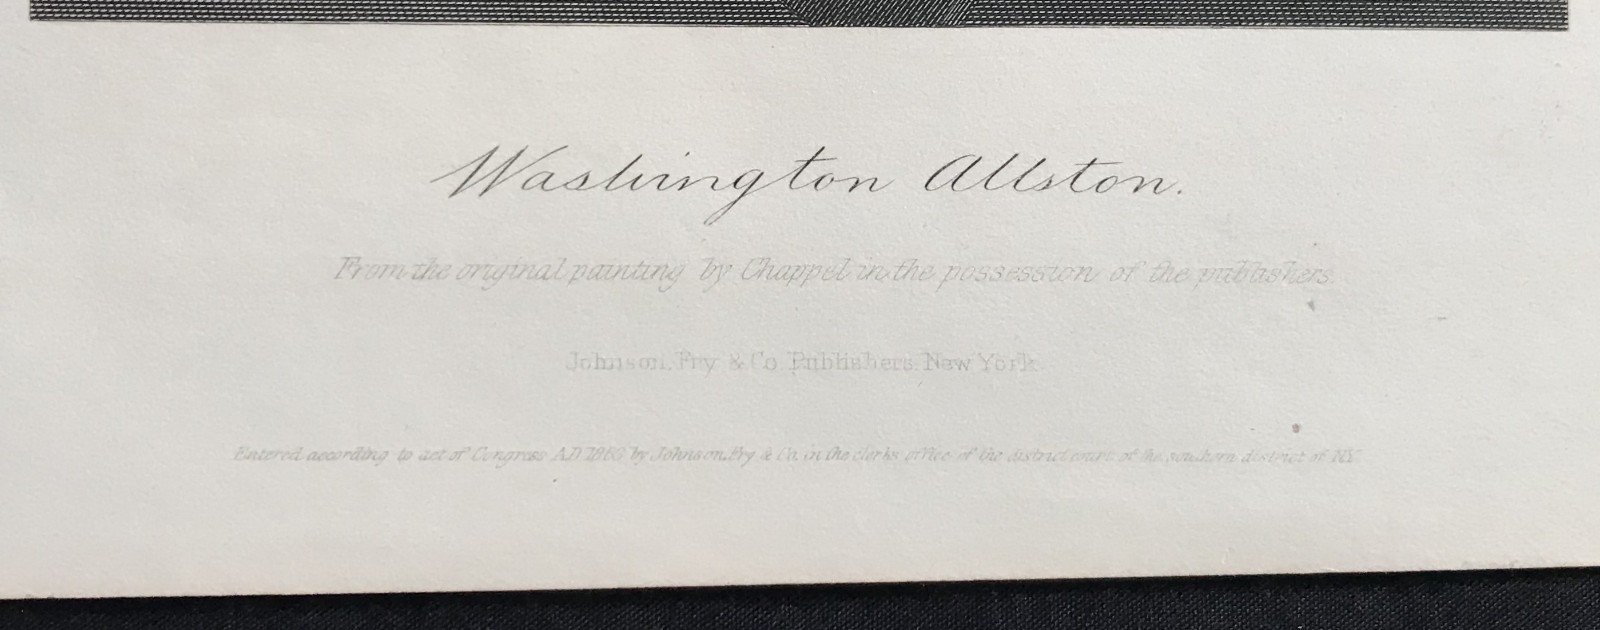 Washington Allston.
From the original painting by Chappel in the possession of the publishers.
Johnson, Fry & Co. Publishers, New York.
Entered according to act of Congress AD by Johnson, Fry & Co. in the clerks office of the district court of the southern district of NY.